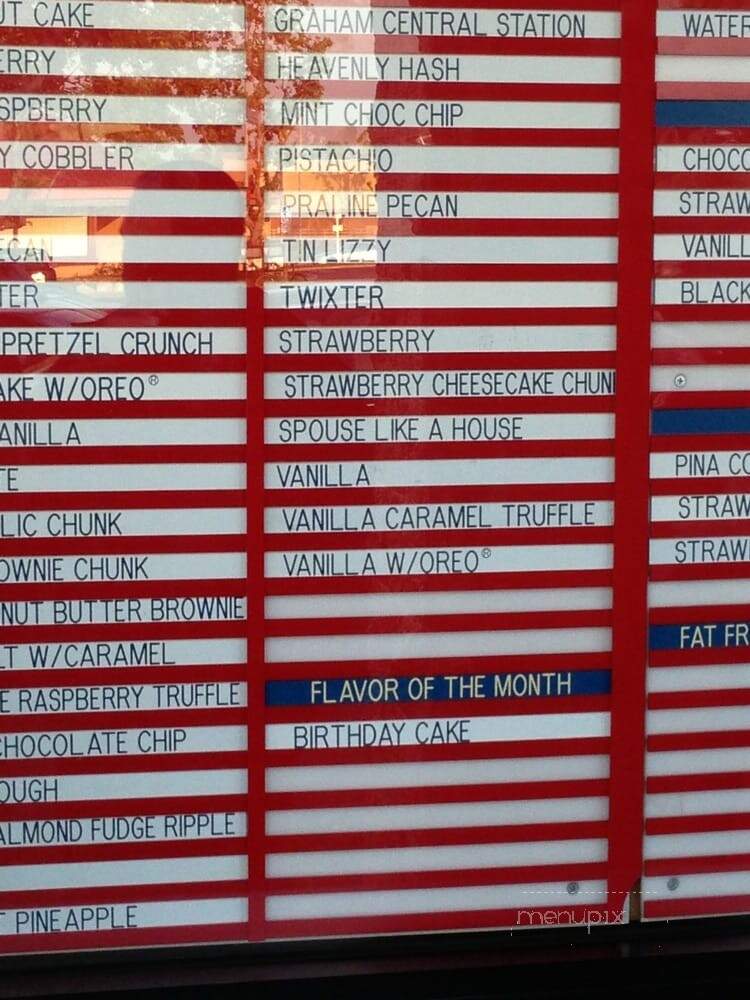 CAKE
COBBLER
PRETZEL CRUNCH
W/OREO®
CHUNK
CHUNK
BUTTER BROWNIE
W/CARAMEL
RASPBERRY TRUFFLE
CHOCOLATE CHIP
ALMOND FUDGE RIPPLE
PINEAPPLE
GRAHAM CENTRAL STATION
HEAVENLY HASH
MINT CHOC CHIP
PISTACHIO
PRALINE PECAN
TIN LIZZY
TWIXTER
STRAWBERRY
STRAWBERRY CHEESECAKE CHUN
SPOUSE LIKE A HOUSE
VANILLA
VANILLA CARAMEL TRUFFLE
VANILLA W/OREO®
FLAVOR OF THE MONTH
BIRTHDAY CAKE
WATER
CHOCO
STRAW
VANILL
BLACK
PINA CO
STRAW
STRAW
FAT FR
menupix